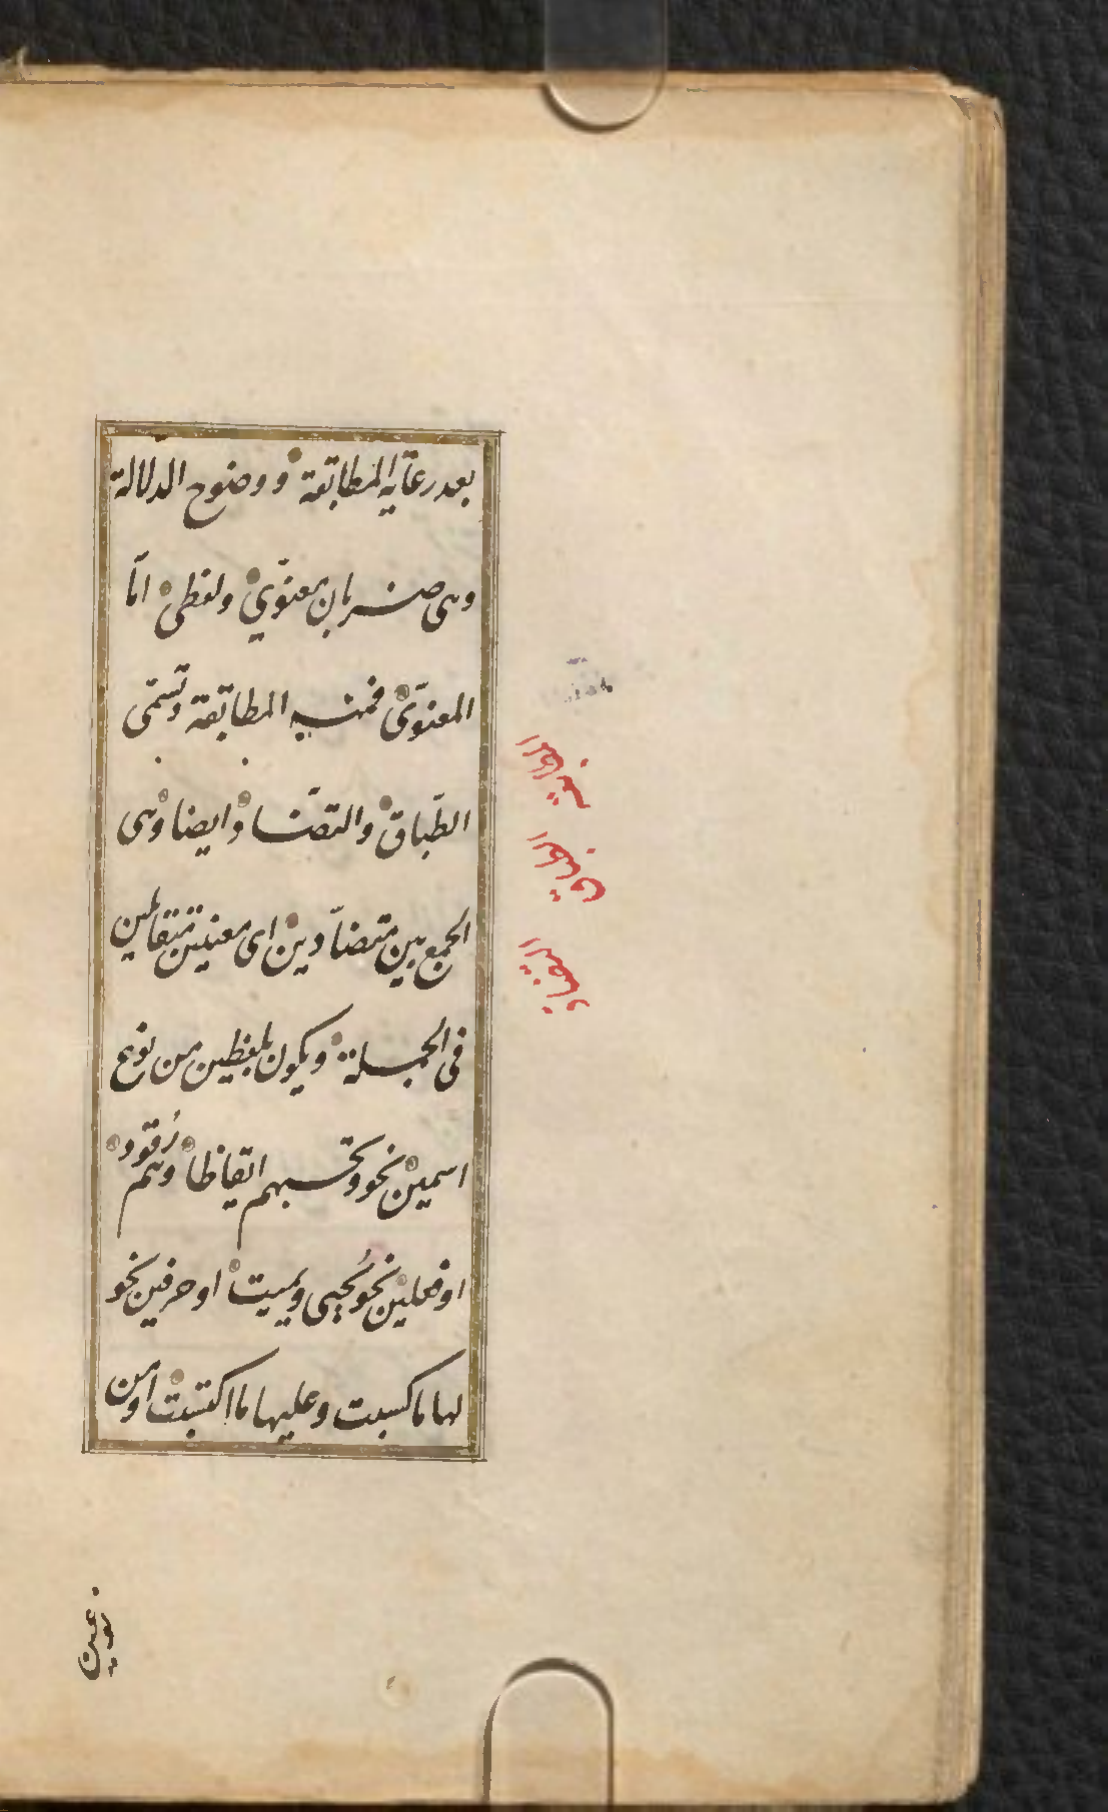 بعد رعاية المطابقة ووضوح الدلالة
وهى ضربان معنوىّ ولفظى امّا
المعنوىّ فمنه المطابقة وتسمّى
الطّباق والتضّاد ايضا وهى
الجمع بين متضادّين اى معنيين متقابلين
فى الجملة ويكون بلفظين من نوع
اسمين نحو وتحسبهم ايقاظا وهم رُقود
او فعلين نحو يُحيى ويميت او حرفين نحو
لها ما كسبت وعليها ما اكتسبت او من
الطباق
التضاد
نوعين